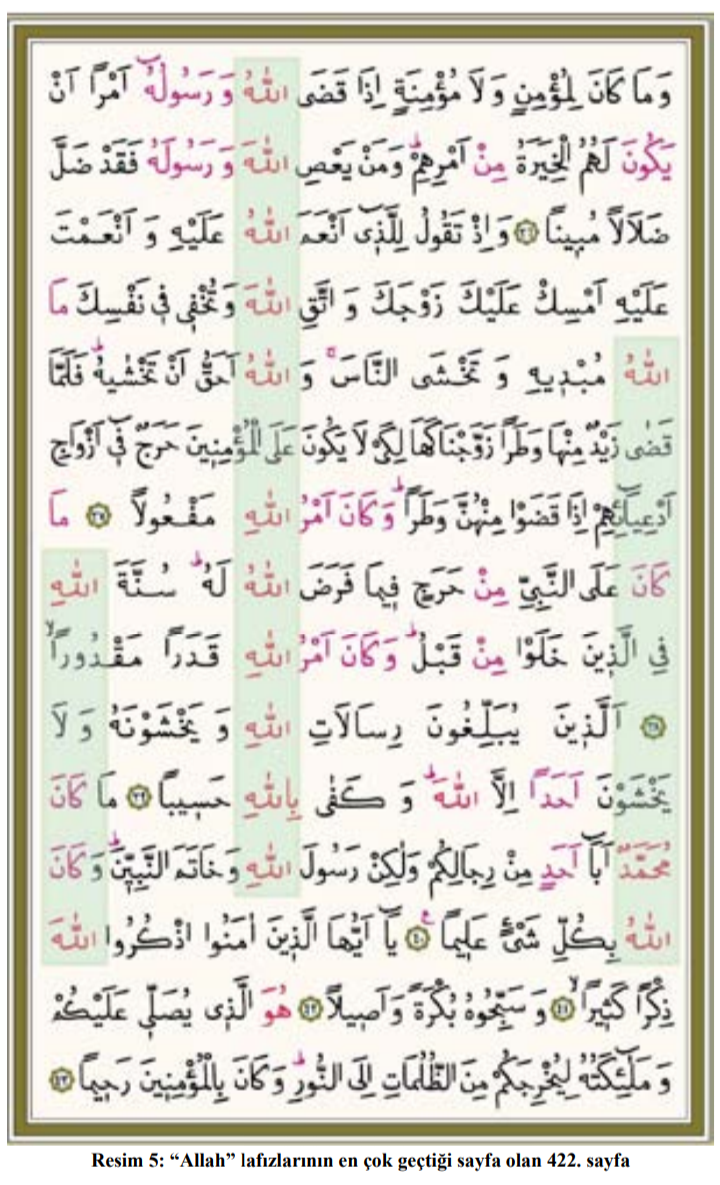 وَمَا كَانَ لِمُؤْمِنٍ وَلَا مُؤْمِنَةٍ اِذَا قَضَى اللّٰهُ وَرَسُولُهُٓ اَمْرًا اَنْ
يَكُونَ لَهُمُ الْخِيَرَةُ مِنْ اَمْرِهِمْۜ وَمَنْ يَعْصِ اللّٰهَ وَرَسُولَهُ فَقَدْ ضَلَّ
ضَلَالاً مُبِيناً ﴿٣٦﴾ وَاِذْ تَقُولُ لِلَّذِٓى اَنْعَمَ اللّٰهُ عَلَيْهِ وَ اَنْعَمْتَ
عَلَيْهِ اَمْسِكْ عَلَيْكَ زَوْجَكَ وَ اتَّقِ اللّٰهَ وَتُخْفِى فِى نَفْسِكَ مَا
اللّٰهُ مُبْدِيهِ وَ تَخْشَى النَّاسَۚ وَ اللّٰهُ اَحَقُّ اَنْ تَخْشٰيهُۜ فَلَمَّا
قَضٰى زَيْدٌ مِنْهَا وَطَرًا زَوَّجْنَاكَهَا لِكَىْ لَا يَكُونَ عَلَى الْمُؤْمِنِينَ حَرَجٌ فِٓى اَزْوَاجِ
اَدْعِيَٓائِهِمْ اِذَا قَضَوْا مِنْهُنَّ وَطَرًاۜ وَكَانَ اَمْرُ اللّٰهِ مَفْعُولاً ﴿٣٧﴾ مَا
كَانَ عَلَى النَّبِىِّ مِنْ حَرَجٍ فِيمَا فَرَضَ اللّٰهُ لَهُۜ سُنَّةَ اللّٰهِ
فِى الَّذِينَ خَلَوْا مِنْ قَبْلُۜ وَكَانَ اَمْرُ اللّٰهِ قَدَرًا مَقْدُورًاۙ
﴿٣٨﴾ اَلَّذِينَ يُبَلِّغُونَ رِسَالَاتِ اللّٰهِ وَ يَخْشَوْنَهُ وَ لَا
يَخْشَوْنَ اَحَدًا اِلَّا اللّٰهَۜ وَ كَفٰى بِاللّٰهِ حَسِيباً ﴿٣٩﴾ مَا كَانَ
مُحَمَّدٌ اَبَٓا اَحَدٍ مِنْ رِجَالِكُمْ وَلٰكِنْ رَسُولَ اللّٰهِ وَخَاتَمَ النَّبِيّٖنَۜ وَكَانَ
اللّٰهُ بِكُلِّ شَىْءٍ عَلِيماً ﴿٤٠﴾ يَٓا اَيُّهَا الَّذِينَ اٰمَنُوا اذْكُرُوا اللّٰهَ
ذِكْرًا كَثِيرًاۙ ﴿٤١﴾ وَ سَبِّحُوهُ بُكْرَةً وَاَصِيلاً ﴿٤٢﴾ هُوَ الَّذِى يُصَلِّى عَلَيْكُمْ
وَ مَلٰٓئِكَتُهُ لِيُخْرِجَكُمْ مِنَ الظُّلُمَاتِ اِلَى النُّورِۜ وَكَانَ بِالْمُؤْمِنِينَ رَحِيماً ﴿٤٣﴾
Resim 5: “Allah” lafızlarının en çok geçtiği sayfa olan 422. sayfa